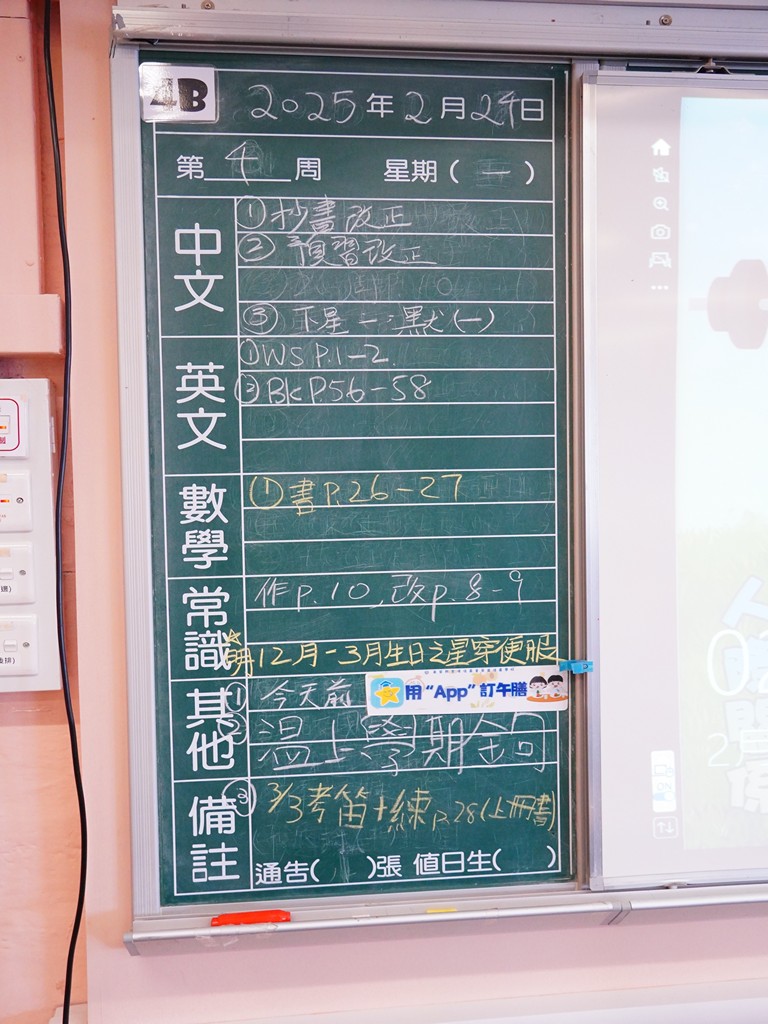 4B
2025年2月24日
第4周 星期(一)
中文
①抄書改正
②預習改正
③下星一:默(一)
英文
①WS P.1-2
②BK P.56-58
數學
①書P.26-27
常識
作p.10、改p.8-9
☆明12月-3月生日之星穿便服
其他
①今天前
用“App”訂午膳
②溫上學期金句
備註
③3/3考笛+練p.28(上冊書)
通告( )張 值日生( )
2月